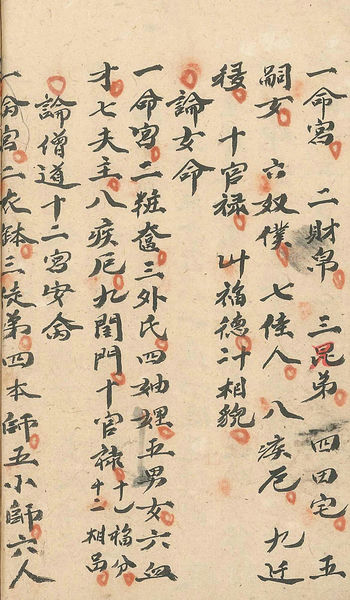 一命宫 二財帛 三昆弟 四田宅 五
嗣女 六奴僕 七佳人 八疾厄 九迁
移 十官禄 十一福德 十二相貌
論女命
一命宫二粧奩三外氏四妯娌五男女六血
才七夫主八疾厄九閨門十官禄十一福分十二相品
論僧道十二宫安命
一命宫二衣鉢三徒弟四本師五小師六人